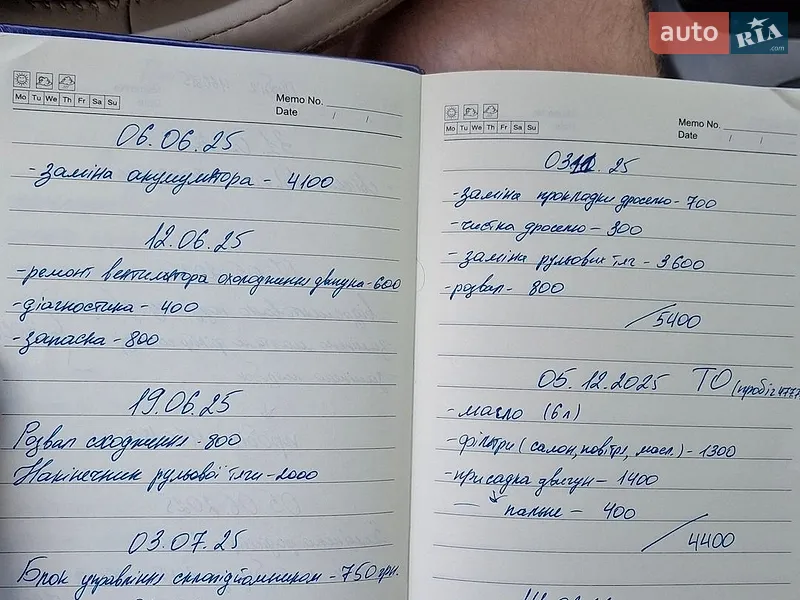 auto RIA.com
Mo Tu We Th Fr Sa Su
Memo No.
Date / /
06.06.25
- заміна акумулятора - 4100
12.06.25
- ремонт вентилятора охолодження двигуна - 600
- діагностика - 400
- запаска - 800
19.06.25
Розвал сходження - 800
Накінечник рульової тяги - 2000
03.07.25
Блок управління склопідйомником - 750 грн.
Mo Tu We Th Fr Sa Su
Memo No.
Date / /
03.11.25
- заміна прокладки дроселю - 700
- чистка дроселю - 300
- заміна рульових тяг - 3600
- розвал - 800
/5400
05.12.2025 ТО (пробіг 4777
- масло (6л)
- фільтри (салон, повітря, масл.) - 1300
- присадка двигун - 1400
— пальне - 400
/4400